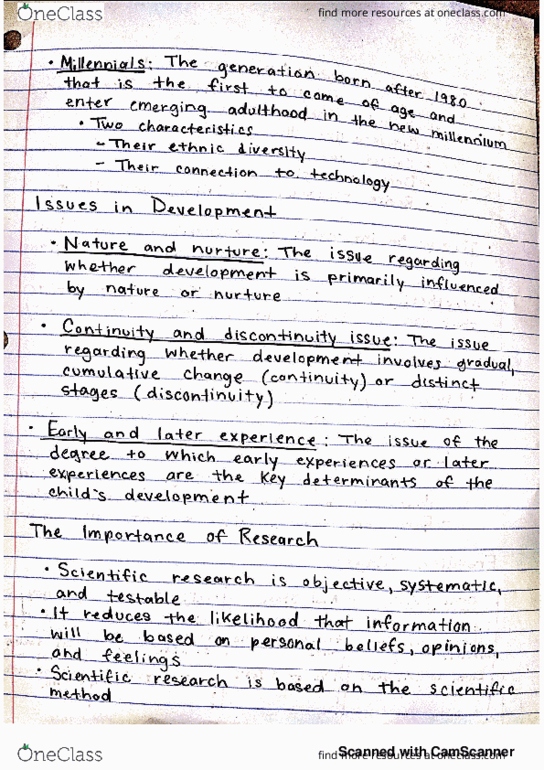 OneClass
find more resources at oneclass.com
• Millennials: The generation born after 1980
that is the first to come of age and
enter emerging adulthood in the new millennium
• Two characteristics
- Their ethnic diversity
- Their connection to technology
Issues in Development
• Nature and nurture: The issue regarding
whether development is primarily influenced
by nature or nurture
• Continuity and discontinuity issue: The issue
regarding whether development involves gradual,
cumulative change (continuity) or distinct
stages (discontinuity)
• Early and later experience: The issue of the
degree to which early experiences or later
experiences are the key determinants of the
child's development
The Importance of Research
• Scientific research is objective, systematic,
and testable
• It reduces the likelihood that information
will be based on personal beliefs, opinions,
and feelings
• Scientific research is based on the scientific
method
OneClass
find more resources at oneclass.com
Scanned with CamScanner